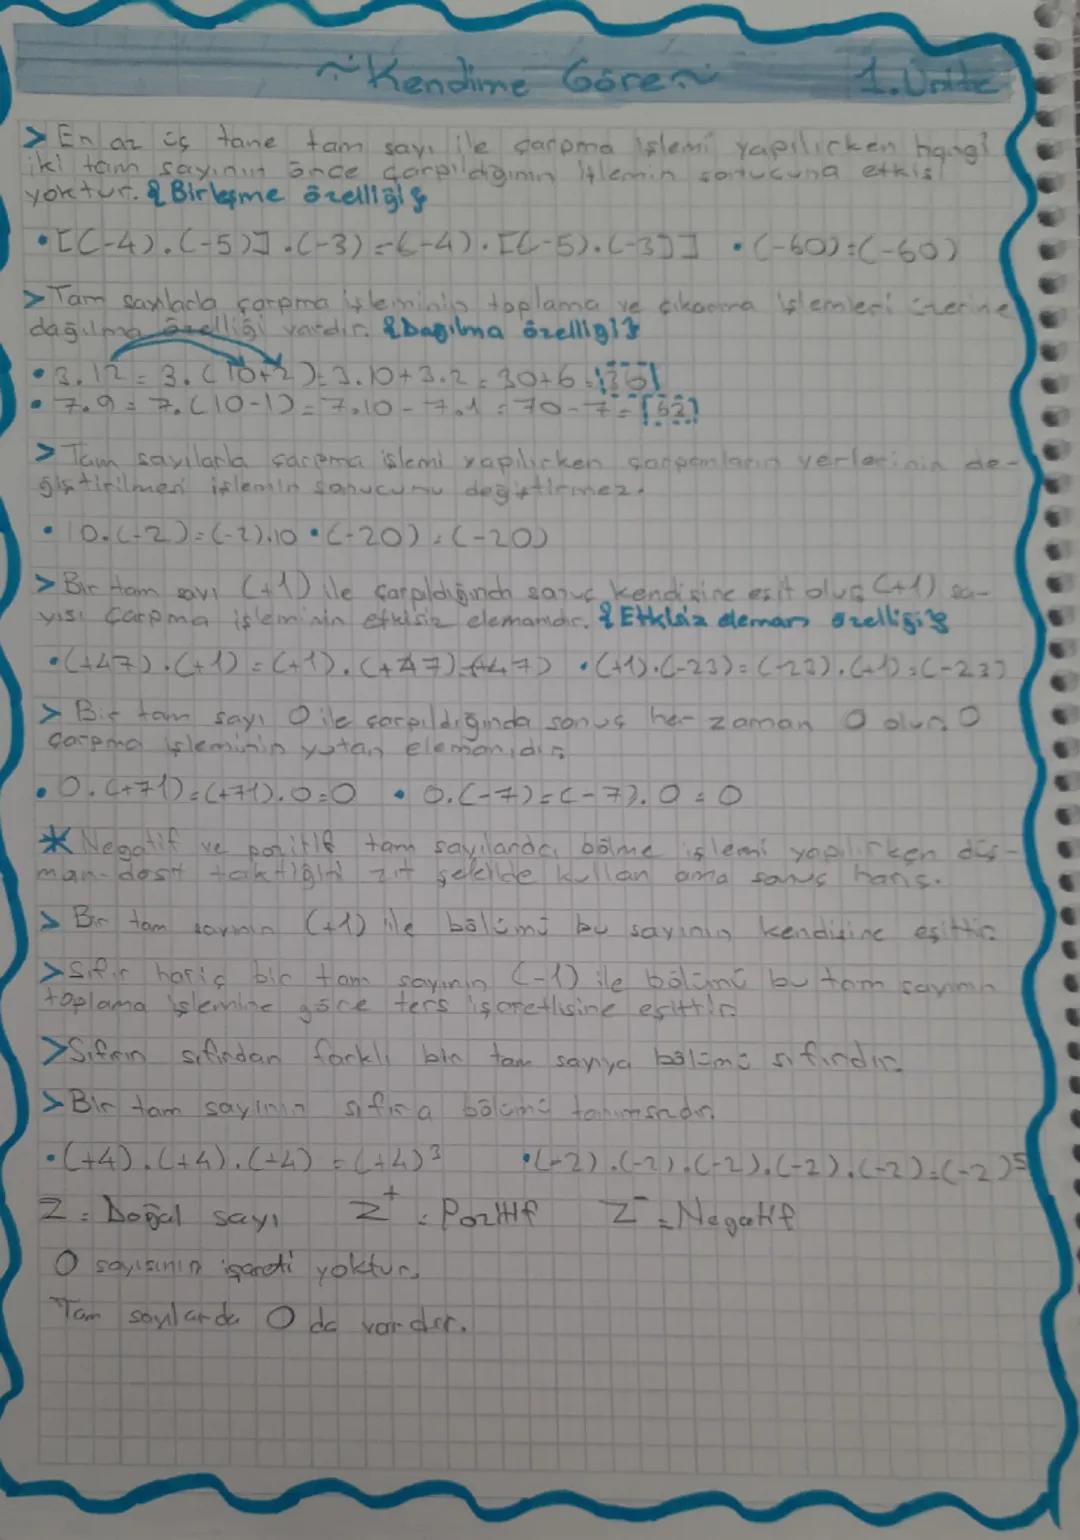 ~Kendime Göre~ 1.Ünite
> En az üç tane tam sayı ile çarpma işlemi yapılırken hangi
iki tam sayının önce çarpıldığının işlemin sonucuna etkisi
yoktur. {Birleşme özelliği}
• [(-4).(-5)].(-3)=(-4).[(-5).(-3)] • (-60)=(-60)
> Tam sayılarda çarpma işleminin toplama ve çıkarma işlemleri üzerine
dağılma özelliği vardır. {Dağılma özelliği}
• 3.12 = 3.(10+2)= 3.10+3.2 = 30+6 = 36
• 7.9 = 7.(10-1)= 7.10 - 7.1 = 70-7=
> Tam sayılarla çarpma işlemi yapılırken çarpanların yerlerinin de-
ğiştirilmesi işlemin sonucunu değiştirmez.
• 10.(-2)=(-2).10 • (-20)=(-20)
> Bir tam sayı (+1) ile çarpıldığında sonuç kendisine eşit olur (+1) sa-
yısı çarpma işleminin etkisiz elemanıdır. {Etkisiz eleman özelliği}
• (+47).(+1)=(+1).(+47)=(+47) • (+1).(-23)=(-23).(+1)=(-23)
> Bir tam sayı 0 ile çarpıldığında sonuç her zaman 0 olur. 0
çarpma işleminin yutan elemanıdır.
• 0.(+71)=(+71).0=0 • 0.(-7)=(-7).0=0
* Negatif ve pozitif tam sayılarda bölme işlemi yapılırken düş-
man-dost taktiğini zıt şekilde kullan ama sonuç hariç.
> Bir tam sayının (+1) ile bölümü bu sayının kendisine eşittir.
> Sıfır hariç bir tam sayının (-1) ile bölümü bu tam sayının
toplama işlemine göre ters işaretlisine eşittir.
> Sıfırın sıfırdan farklı bir tam sayıya bölümü sıfırdır.
> Bir tam sayının sıfıra bölümü tanımsızdır.
• (+4).(+4).(+4) = (+4)³ • (-2).(-2).(-2).(-2).(-2)=(-2)⁵
Z = Doğal sayı Z⁺ = Pozitif Z⁻ = Negatif
0 sayısının işareti yoktur.
Tam sayılarda 0 da vardır.